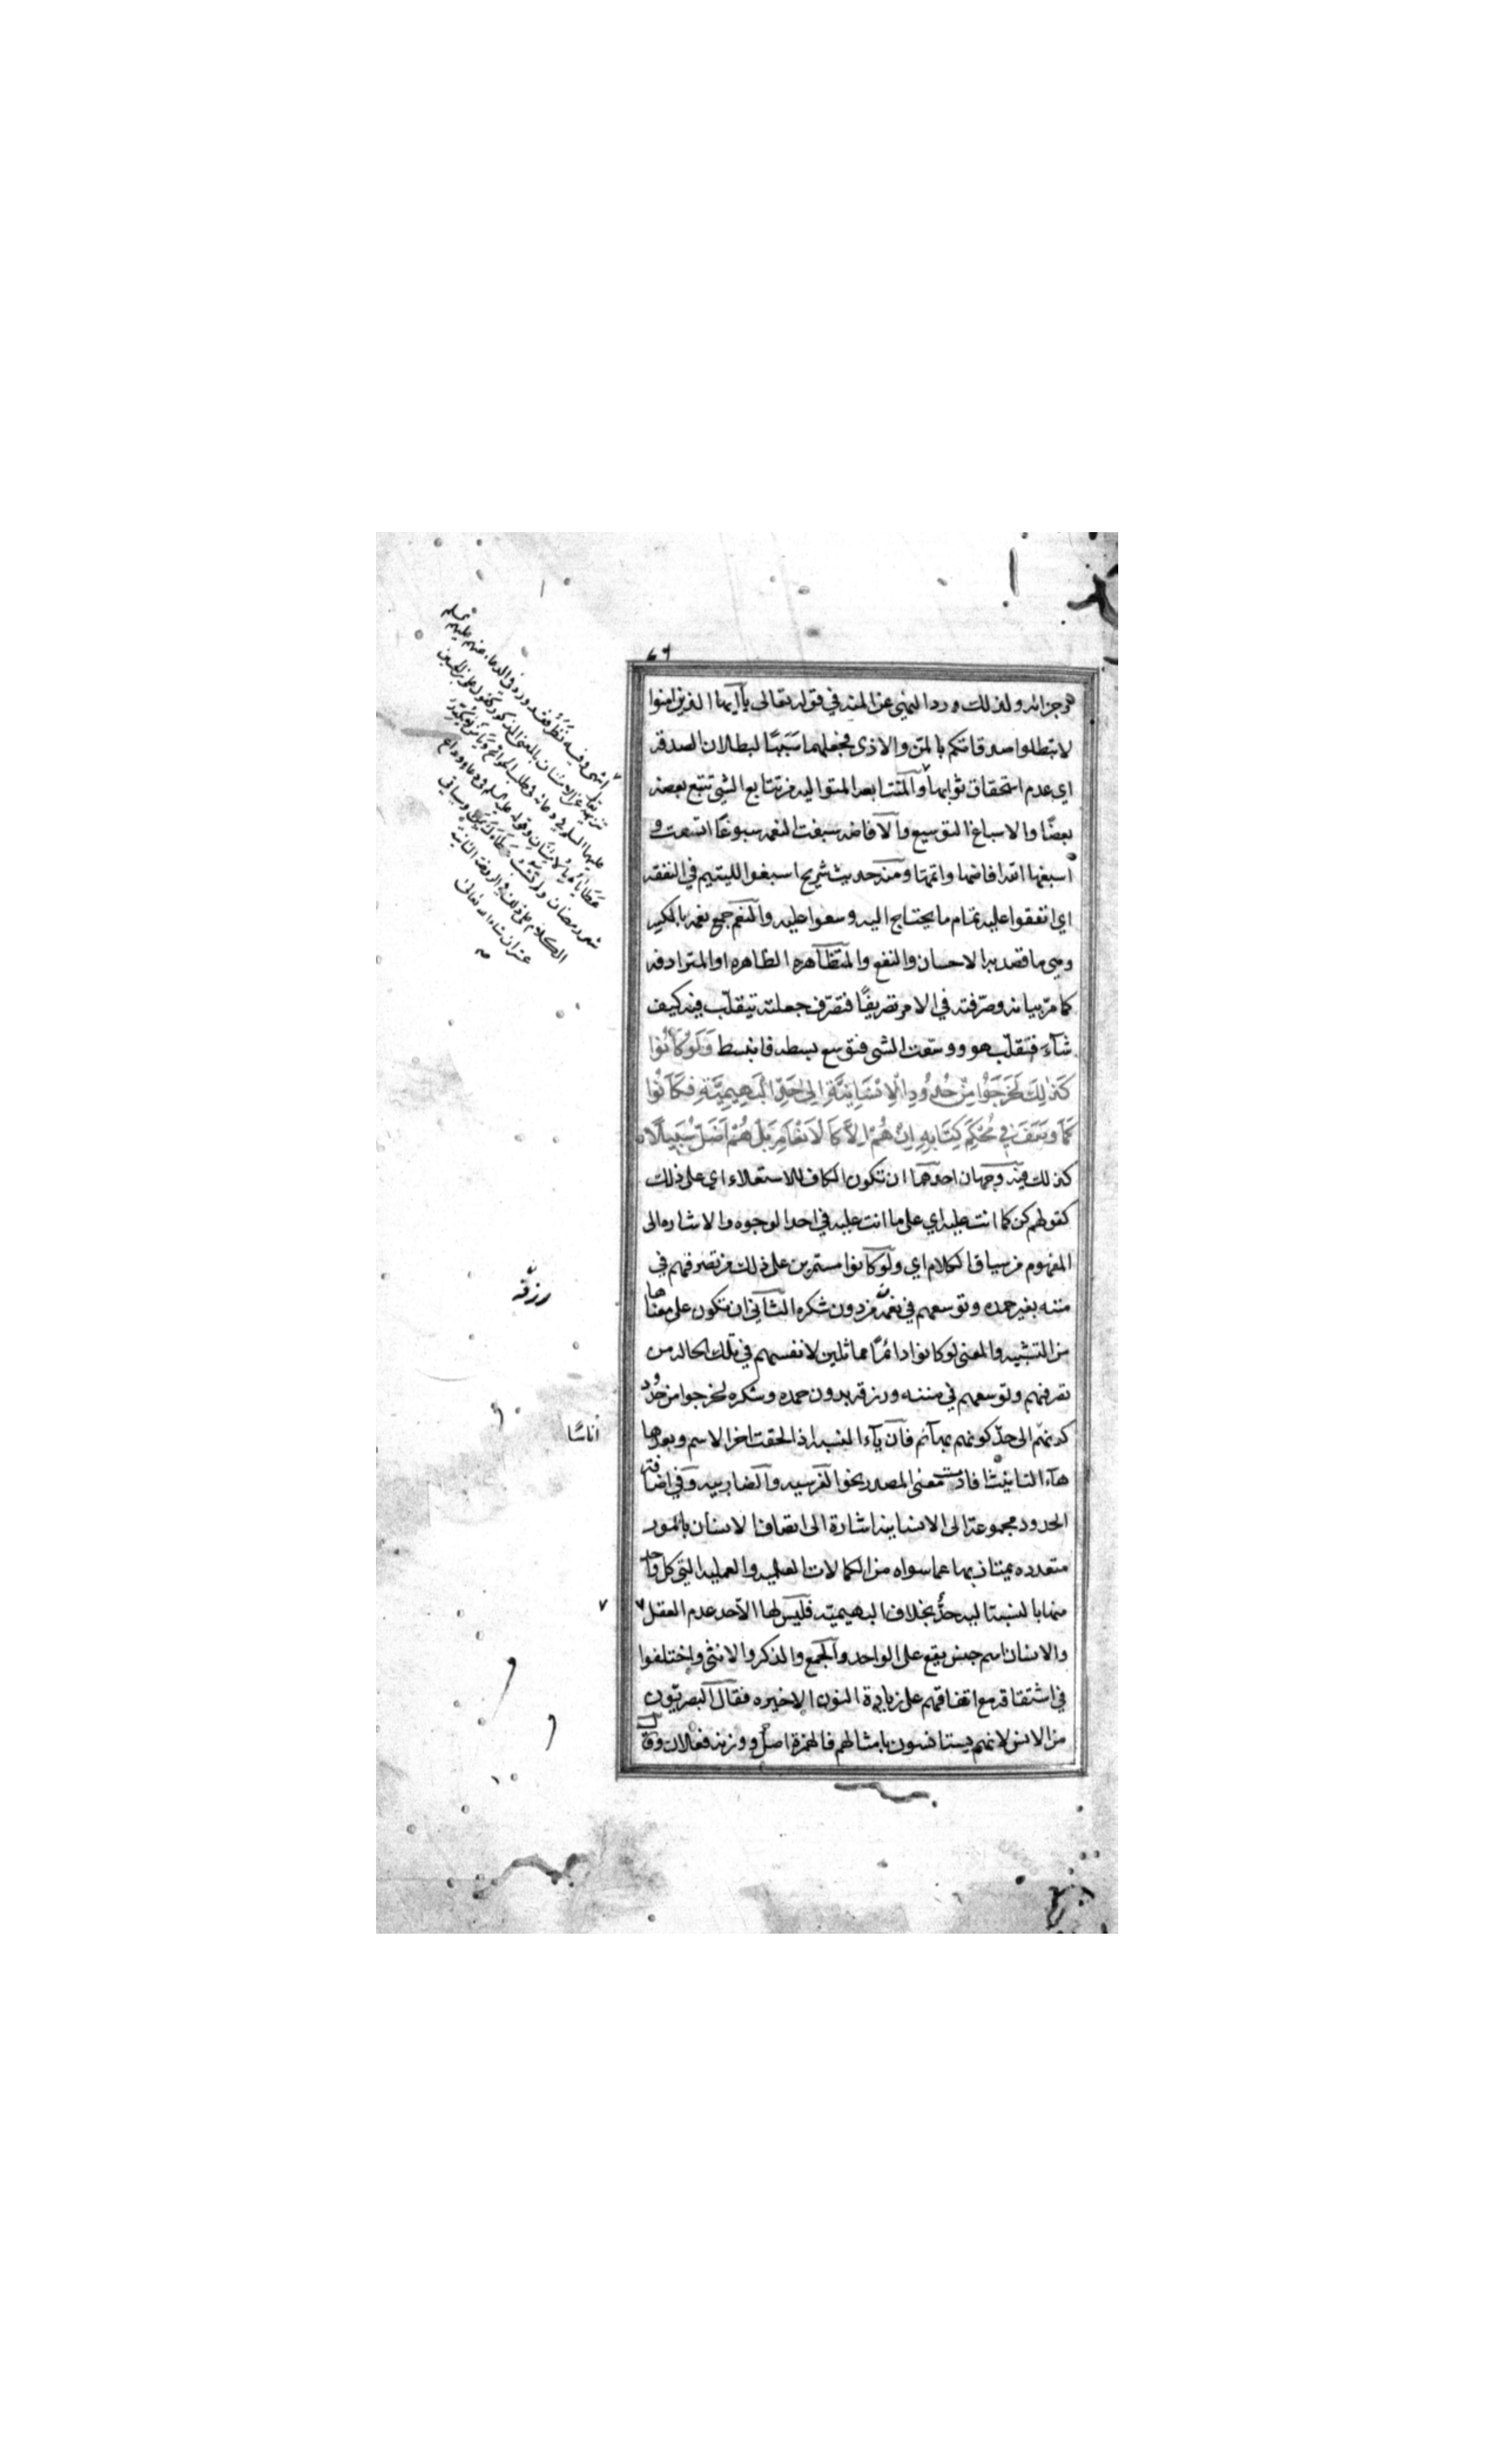 هو جزائه ولذلك ورد النهي عن المنه في قوله تعالى يا آيها الذين امنوا
لا تبطلوا صدقاتكم بالمن والاذى فجعلهما سببًا لبطلان الصدقه
اي عدم استحقاق ثوابها والمتتابعه المتواليه من تتابع الشي تتبع بعضه
بعضًا والاسباغ التوسيع والافاضه سبغت النعمه سبوغًا اتسعت و
اسبغها الله افاضها واتمها ومنه حديث شريح اسبغوا لليتيم في النفقه
اي انفقوا عليه تمام ما يحتاج اليه ووسعوا عليه والنعم جمع نعمه بالكسر
وهي ما قصد به الاحسان والنفع والمتظاهره الظاهره او المترادفه
كما مر بيانه وصرّفته في الامر تصريفًا فتصرّف جعلته يتقلّب فيه كيف
شآء فتقلّب هو ووسّعت الشى فتوسع بسطه فانبسط وَلَوْ كَانُوا
كَذٰلِكَ لَخَرَجُوا مِنْ حُدُودِ الْاِنْسَانِيَّةِ اِلى حَدِّ الْبَهِيمِيَّةِ فَكَانُوا
كَمَا وَصَفَ فِي مُحْكَمِ كِتَابِهِ اِنْ هُمْ اِلَّا كَالْاَنْعَامِ بَلْ هُمْ اَضَلُّ سَبِيلًا
كذلك فيه وجهان احدهما ان تكون الكاف للاستعلاء اي على ذلك
كقولهم كن كما انت عليه اي على ما انت عليه في احد الوجوه والاشاره الى
المفهوم من سياق الكلام اي ولو كانوا مستمرين على ذلك من تصرفهم في
مننه بغير حمده وتوسعهم في نعمه من دون شكره الثاني ان تكون على معناها
من التشبيه والمعنى لو كانوا دائمًا مماثلين لانفسهم في تلك الحاله من
تصرفهم وتوسعهم في مننه ورزقه بدون حمده وشكره لخرجوا من حدود
كونهم الى حدّ كونهم بهآئم فان يآء النسبه اذا لحقت اخر الاسم وبعدها
هآء التانيث افادت معنى المصدر نحو الفرسيه والضاربيه وفي اضافه
الحدود مجموعة الى الانسانيه اشارة الى اتصاف الانسان بامور
متعدده يمتاز بها عما سواه من الكمالات العلميه والعمليه التي كل واحد
منها بالنسبة اليه حدٌّ بخلاف البهيميه فليس لها الّا حد عدم العقل
والانسان اسم جنس يقع على الواحد والجمع والذكر والانثى واختلفوا
في اشتقاقه مع اتفاقهم على زيادة النون الاخيره فقال البصريّون
من الانس لانهم يستانسون بامثالهم فالهمزة اصل ووزنه فعلان وقال
انتهى وفيه نظر فقد ورد في الدعاء عنهم عليهم السلم
تنزيهه تعالى عن الامتنان بالمعنى المذكور كقول علي بن الحسين
عليهما السلم في دعائه في طلب الحوائج ويا من لا يكدّر
عطاياه بالامتنان وقوله عليه السلم في دعاء وداع
شهر رمضان
الكلام على ذلك في الروضة الثانية
عشر ان شاء الله تعالى
صه
رزقه
أناسًا